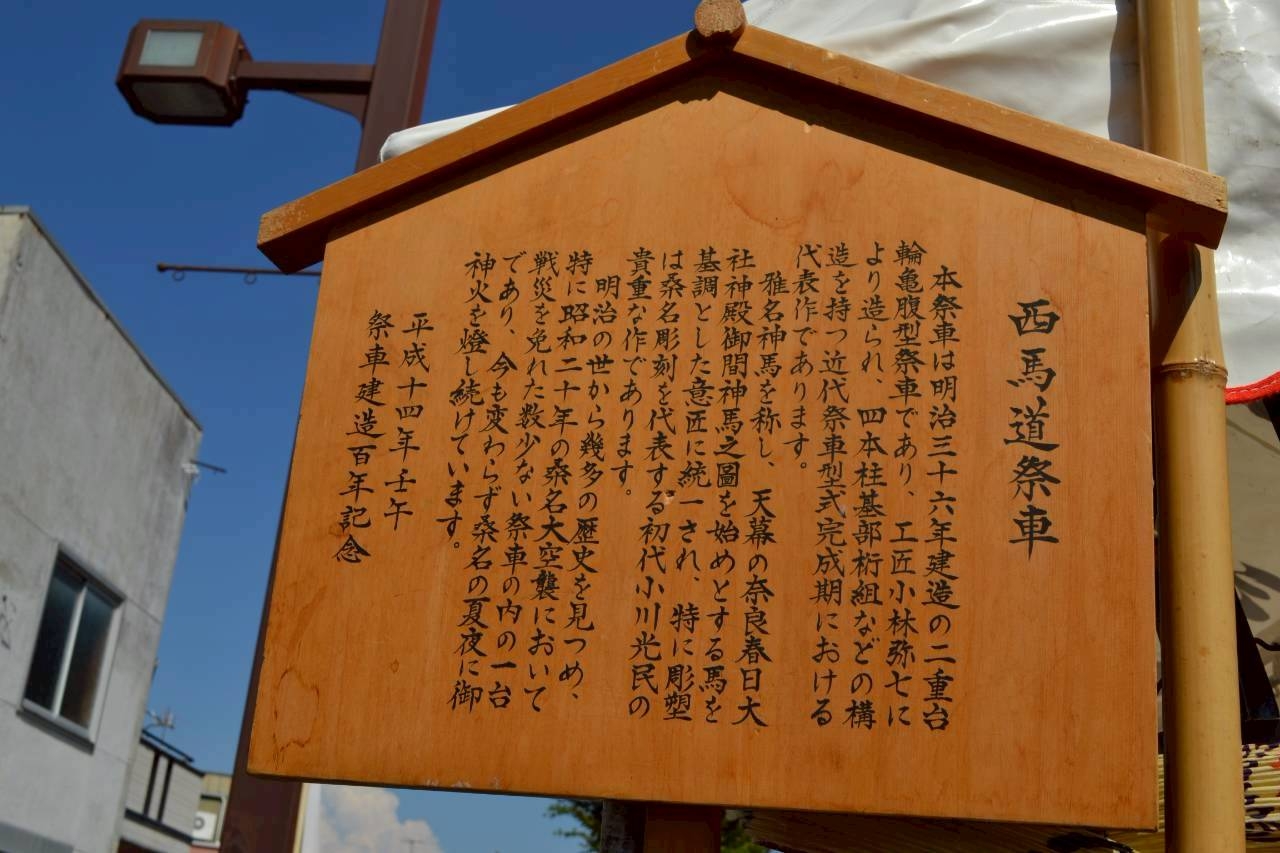 西馬道祭車
本祭車は明治三十六年建造の二重台
輪亀腹型祭車であり、工匠小林弥七に
より造られ、四本柱基部桁組などの構
造を持つ近代祭車型式完成期における
代表作であります。
雅名神馬を称し、天幕の奈良春日大
社神殿御間神馬之圖を始めとする馬を
基調とした意匠に統一され、特に彫塑
は桑名彫刻を代表する初代小川光民の
貴重な作であります。
明治の世から幾多の歴史を見つめ、
特に昭和二十年の桑名大空襲において
戦災を免れた数少ない祭車の内の一台
であり、今も変わらず桑名の夏夜に御
神火を燈し続けています。
平成十四年壬午
祭車建造百年記念